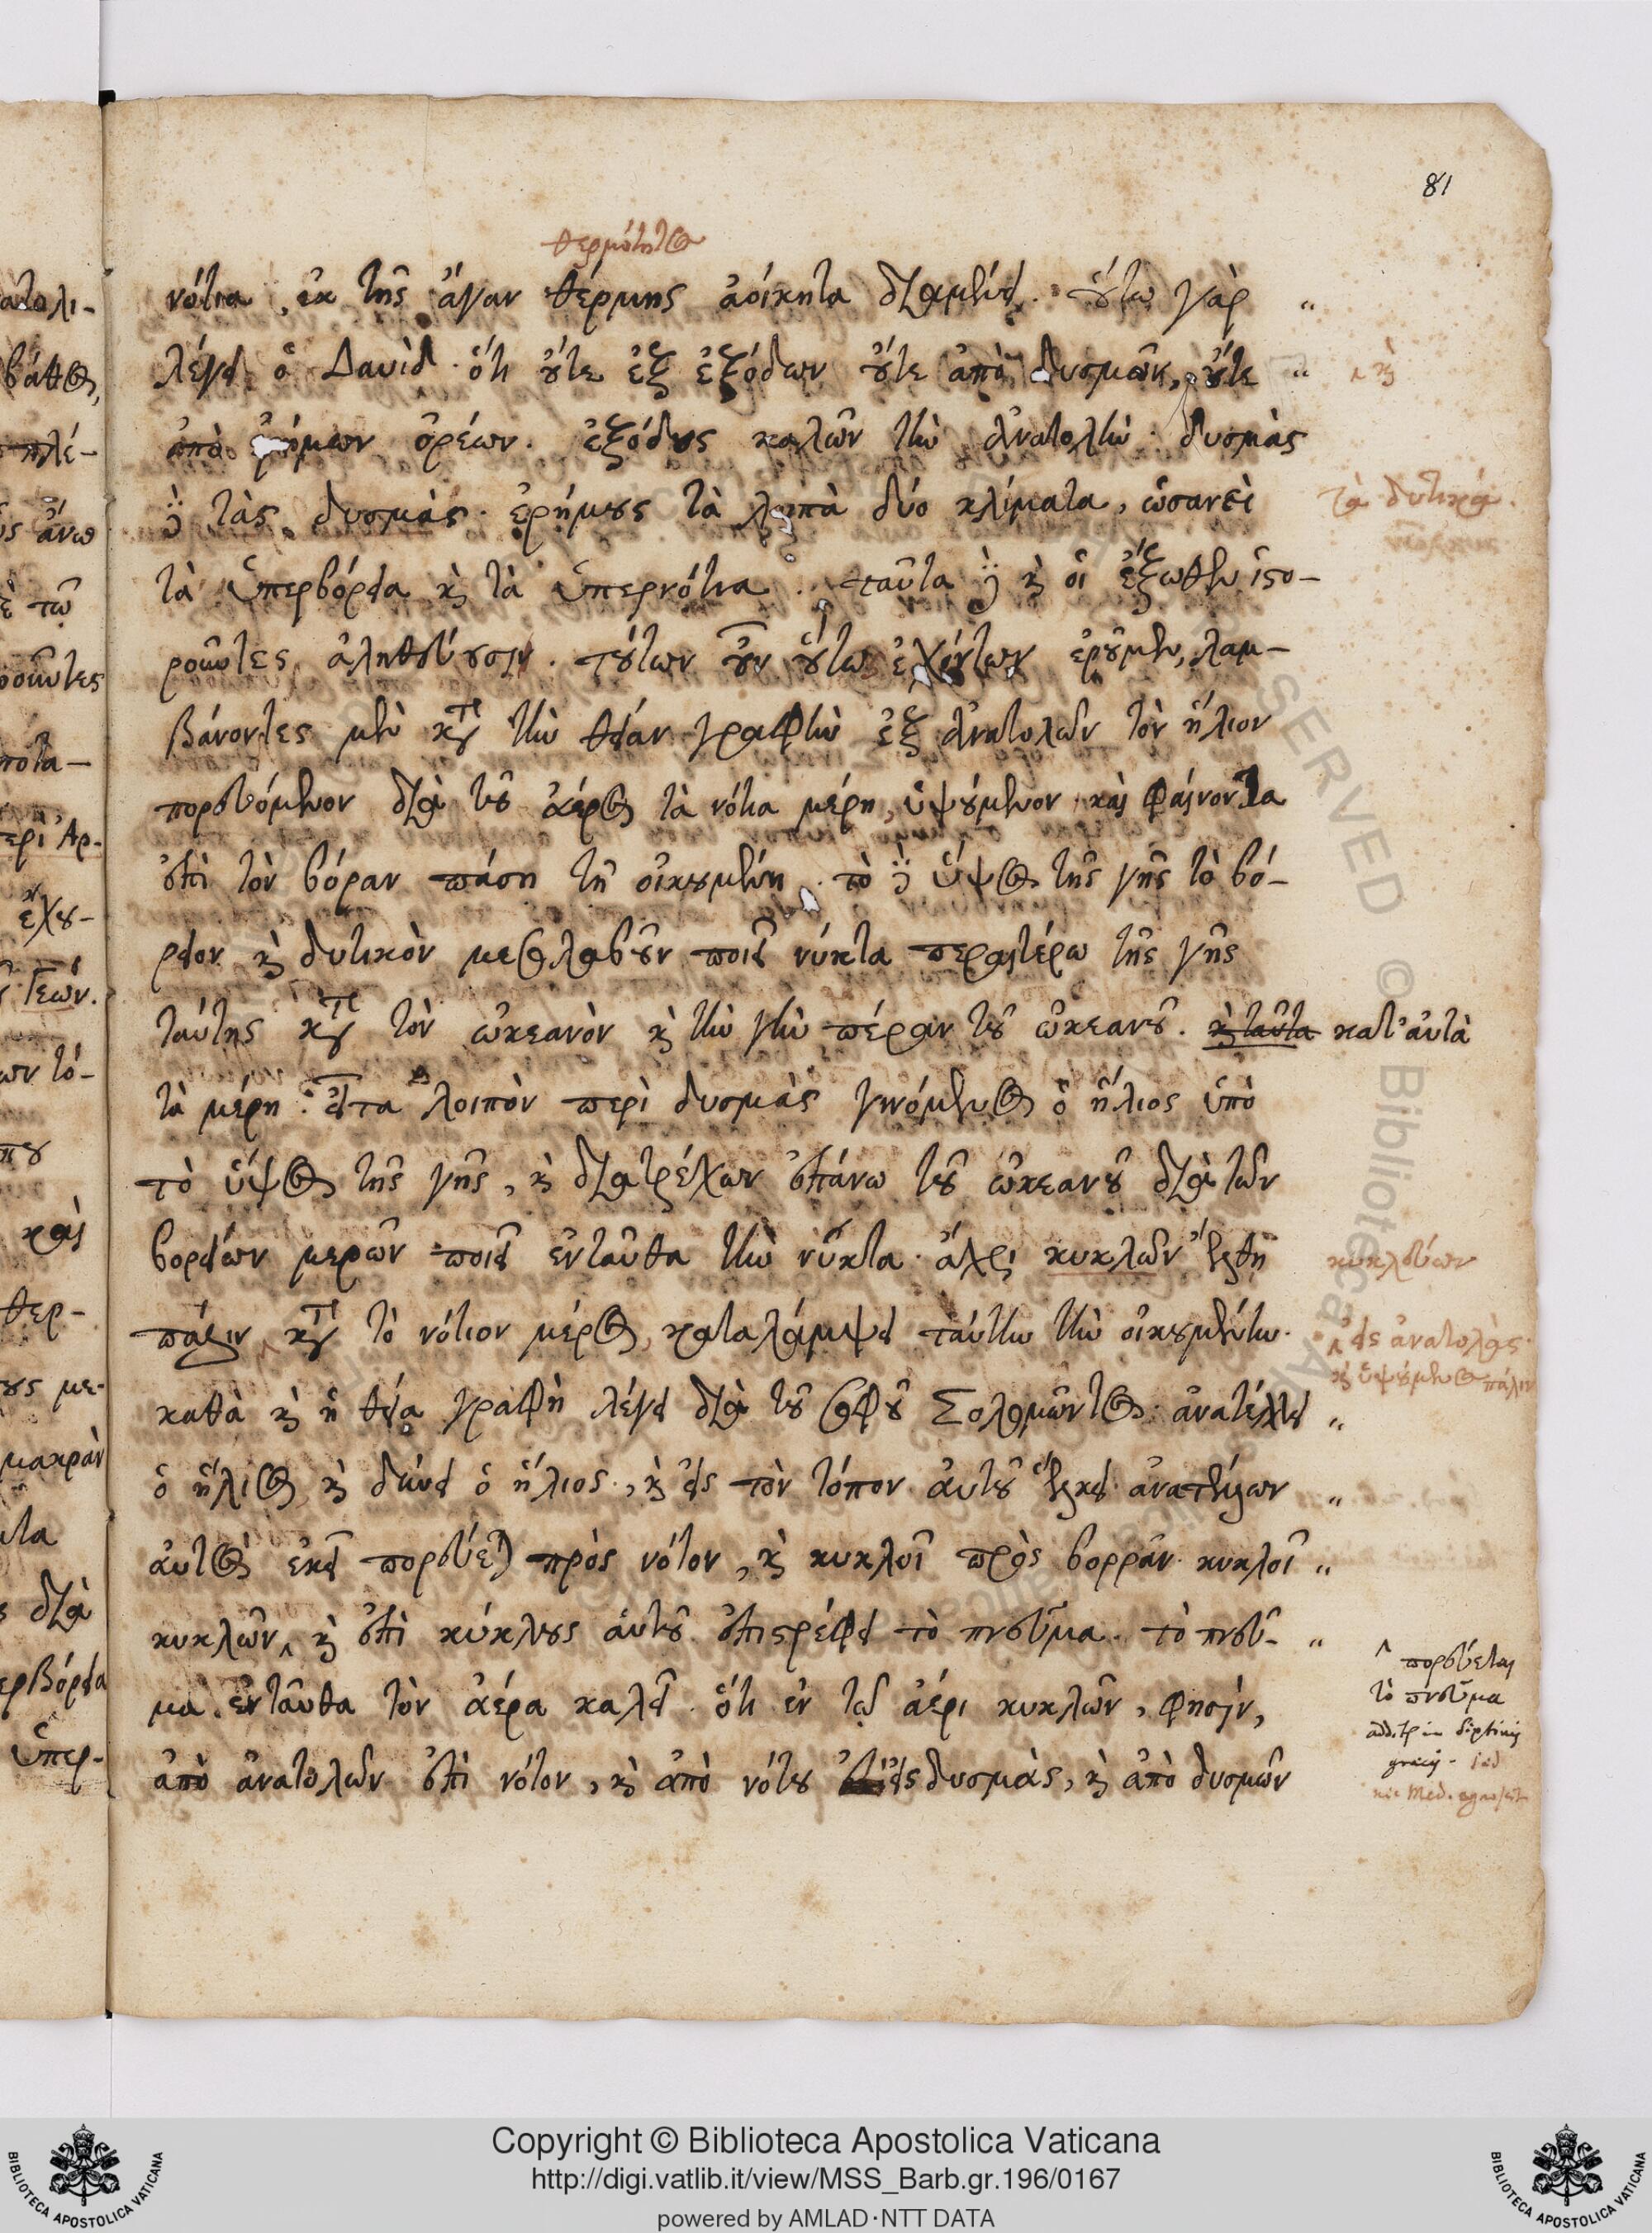 81
θερμότητος
νότια, ἐκ τῆς ἄγαν θέρμης ἀοίκητα διαμένει. οὕτω γὰρ "
λέγει ὁ Δαυίδ· ὅτι οὔτε ἐξ ἐξόδων οὔτε ἀπὸ δυσμῶν, οὔτε " καὶ
ἀπὸ ἐρήμων ὀρέων. ἐξόδους καλῶν τὴν ἀνατολὴν· δυσμὰς
δὲ τὰς δυσμὰς· ἐρήμους τὰ λοιπὰ δύο κλίματα, ὡσανεὶ τὰ δυτικά.
τὰ ὑπερβόρεια καὶ τὰ ὑπερνότια. ταῦτα δὲ καὶ οἱ ἔξωθεν ἱστο-
ροῦντες ἀληθεύουσιν. τούτων οὖν οὕτως ἐχόντων ἐροῦμεν, λαμ-
βάνοντες μὲν κατὰ τὴν θείαν γραφὴν ἐξ ἀνατολῶν τὸν ἥλιον
πορευόμενον διὰ τοῦ ἀέρος τὰ νότια μέρη, ὑψούμενον καὶ φαίνοντα
ἐπὶ τὸν βόραν πάσῃ τῇ οἰκουμένῃ. τὸ δὲ ὕψος τῆς γῆς τὸ βό-
ρειον καὶ δυτικὸν μεσολαβοῦν ποιεῖ νύκτα περαιτέρω τῆς γῆς
ταύτης κατὰ τὸν ὠκεανὸν καὶ τὴν γῆν πέραν τοῦ ὠκεανοῦ. καὶ ταῦτα κατ' αὐτὰ
τὰ μέρη· εἶτα λοιπὸν περὶ δυσμὰς γινόμενος ὁ ἥλιος ὑπὸ
τὸ ὕψος τῆς γῆς, καὶ διατρέχων ἐπάνω τοῦ ὠκεανοῦ διὰ τῶν
βορείων μερῶν ποιεῖ ἐνταῦθα τὴν νύκτα· ἄχρι κυκλῶν ἔλθῃ κυκλεύων
πάλιν κατὰ τὸ νότιον μέρος, καταλάμψει ταύτην τὴν οἰκουμένην. εἰς ἀνατολὰς
καὶ ὑψούμενος πάλιν
καθὰ καὶ ἡ θεία γραφὴ λέγει διὰ τοῦ σοφοῦ Σολομῶντος· ἀνατέλλει "
ὁ ἥλιος καὶ δύνει ὁ ἥλιος, καὶ εἰς τὸν τόπον αὐτοῦ ἕλκει· ἀνατέλλων "
αὐτὸς ἐκεῖ πορεύεται πρὸς νότον, καὶ κυκλοῖ πρὸς βορρᾶν· κυκλοῖ "
κυκλῶν, καὶ ἐπὶ κύκλους αὐτοῦ ἐπιστρέφει τὸ πνεῦμα. τὸ πνεῦ- "
πορεύεται
τὸ πνεῦμα
μα ἐνταῦθα τὸν ἀέρα καλεῖ· ὅτι ἐν τῷ ἀέρι κυκλῶν, φησὶν,
ἀπὸ ἀνατολῶν ἐπὶ νότον, καὶ ἀπὸ νότου εἰς δυσμὰς, καὶ ἀπὸ δυσμῶν
Copyright © Biblioteca Apostolica Vaticana
http://digi.vatlib.it/view/MSS_Barb.gr.196/0167
powered by AMLAD·NTT DATA
BIBLIOTECA APOSTOLICA VATICANA
BIBLIOTECA APOSTOLICA VATICANA